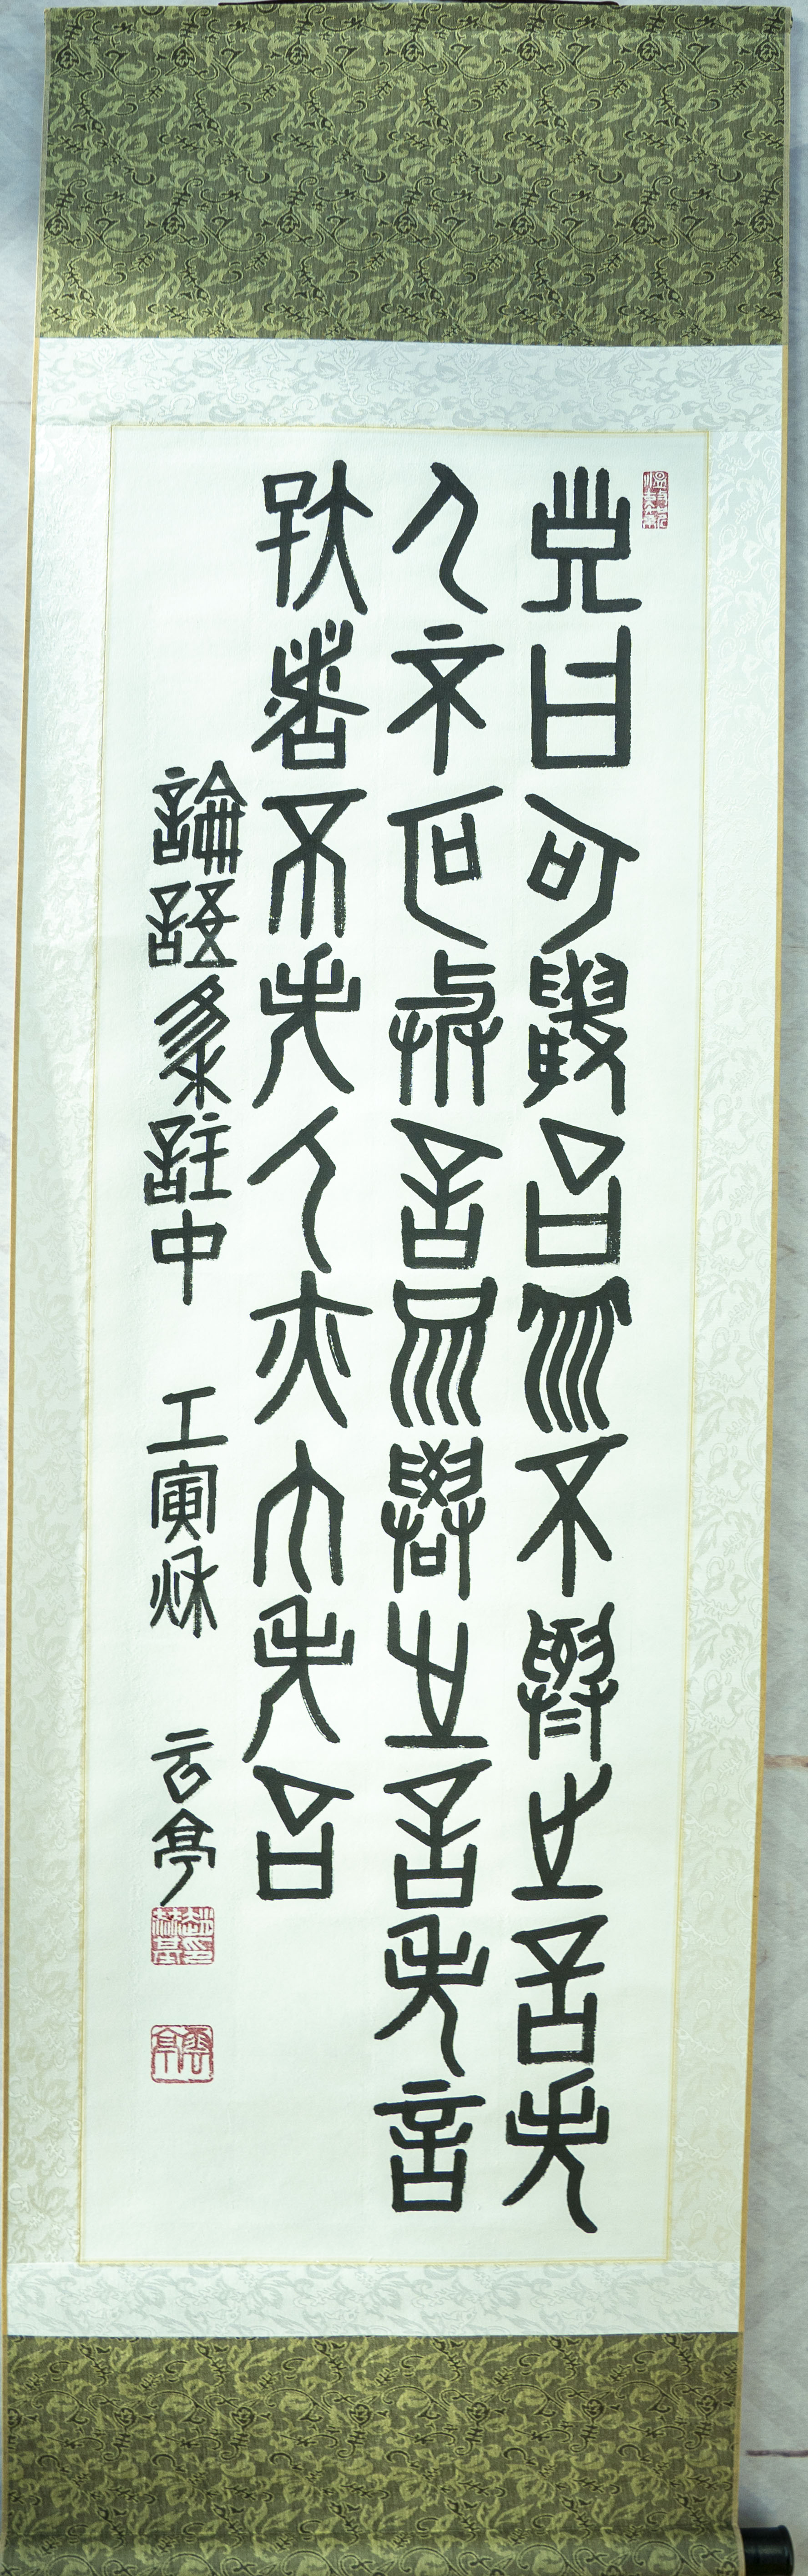 子曰可與言而不與之言失
人不可與言而與之言失言
知者不失人亦不失言
論語集註中 壬寅秋 云亭
雲亭